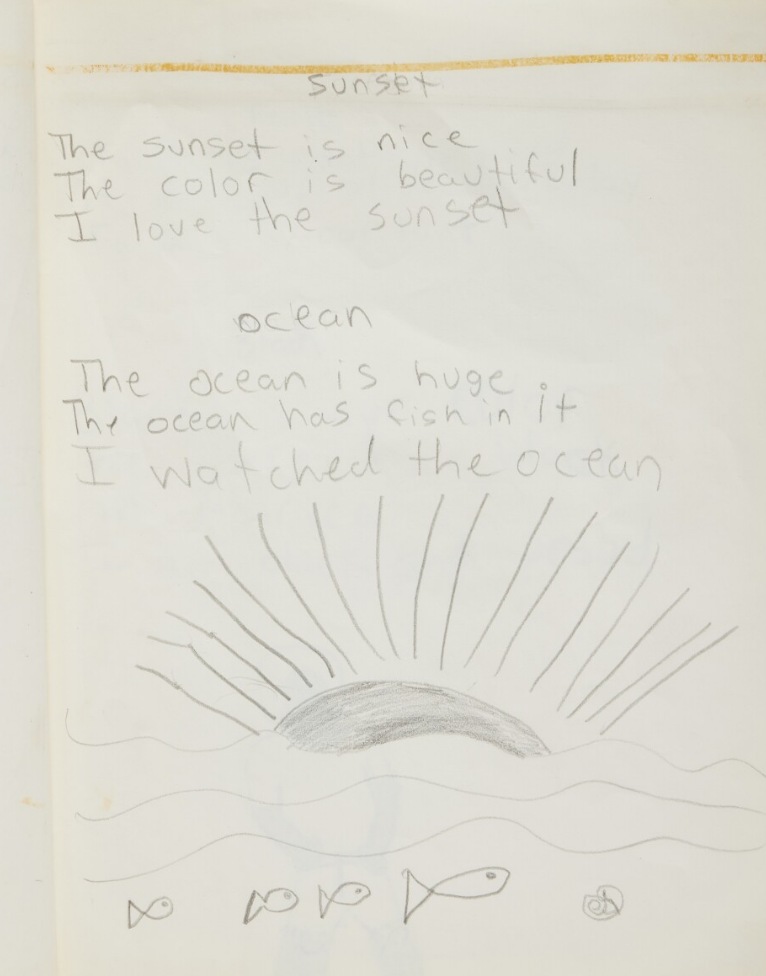 sunset
The sunset is nice
The color is beautiful
I love the sunset
ocean
The ocean is huge
The ocean has fish in it
I watched the ocean